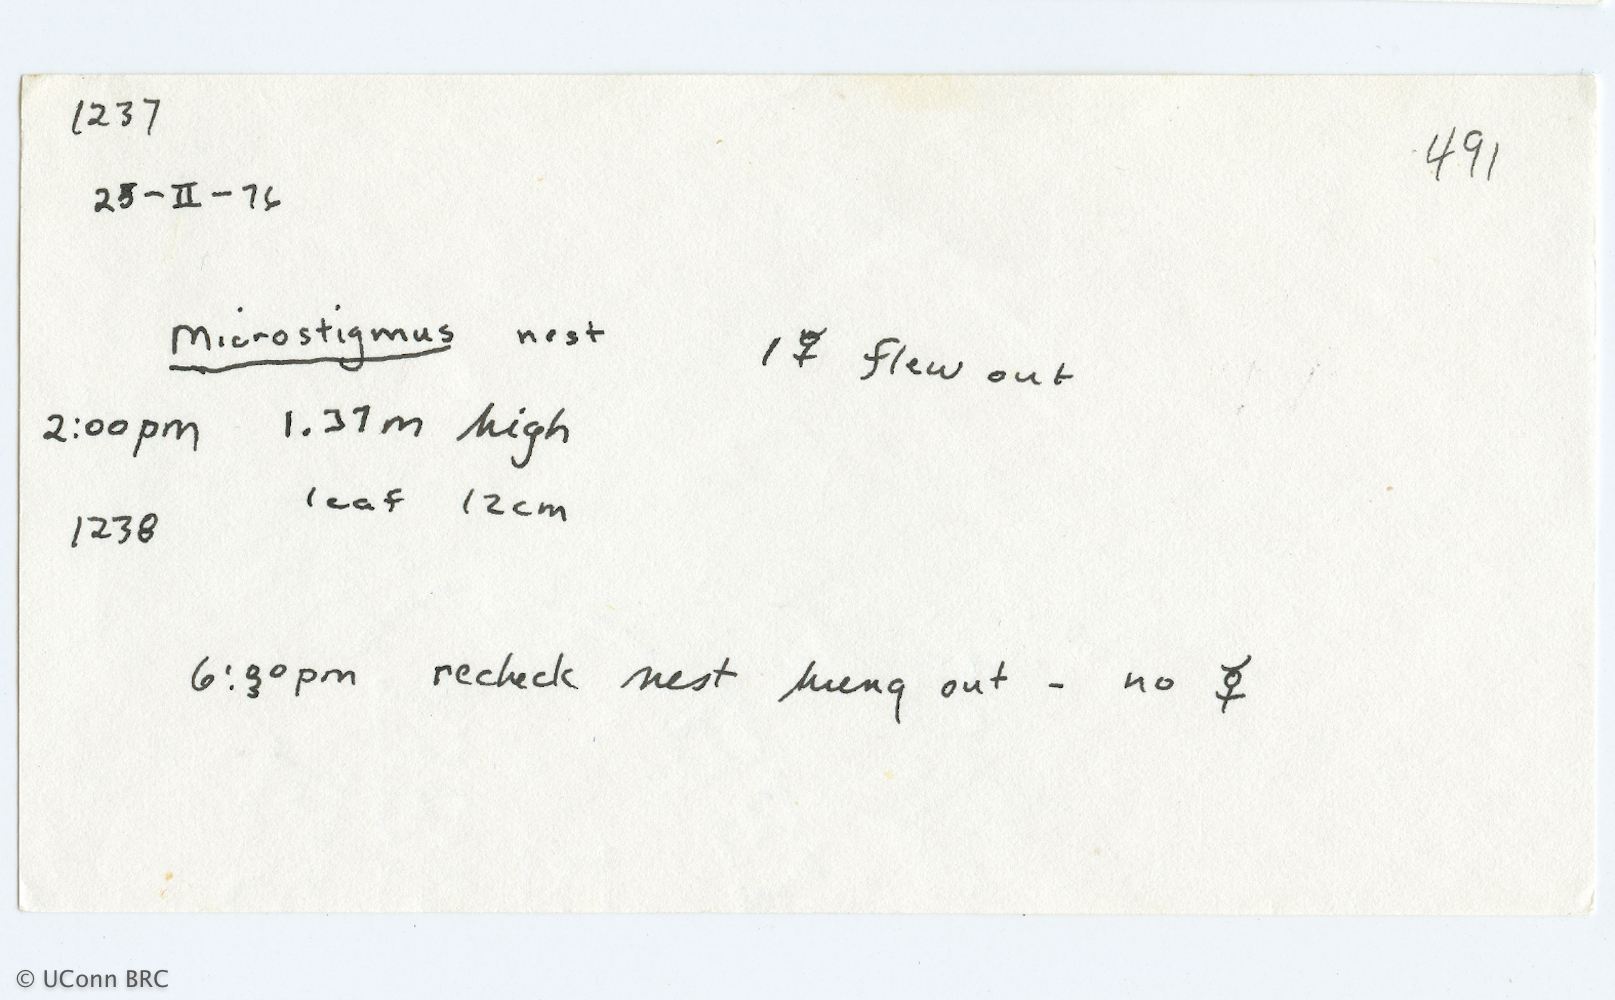 1237
491
25-II-76
Microstigmus nest 1 ☿ flew out
2:00pm 1.37m high
leaf 12cm
1238
6:30pm recheck nest hung out - no ☿
© UConn BRC